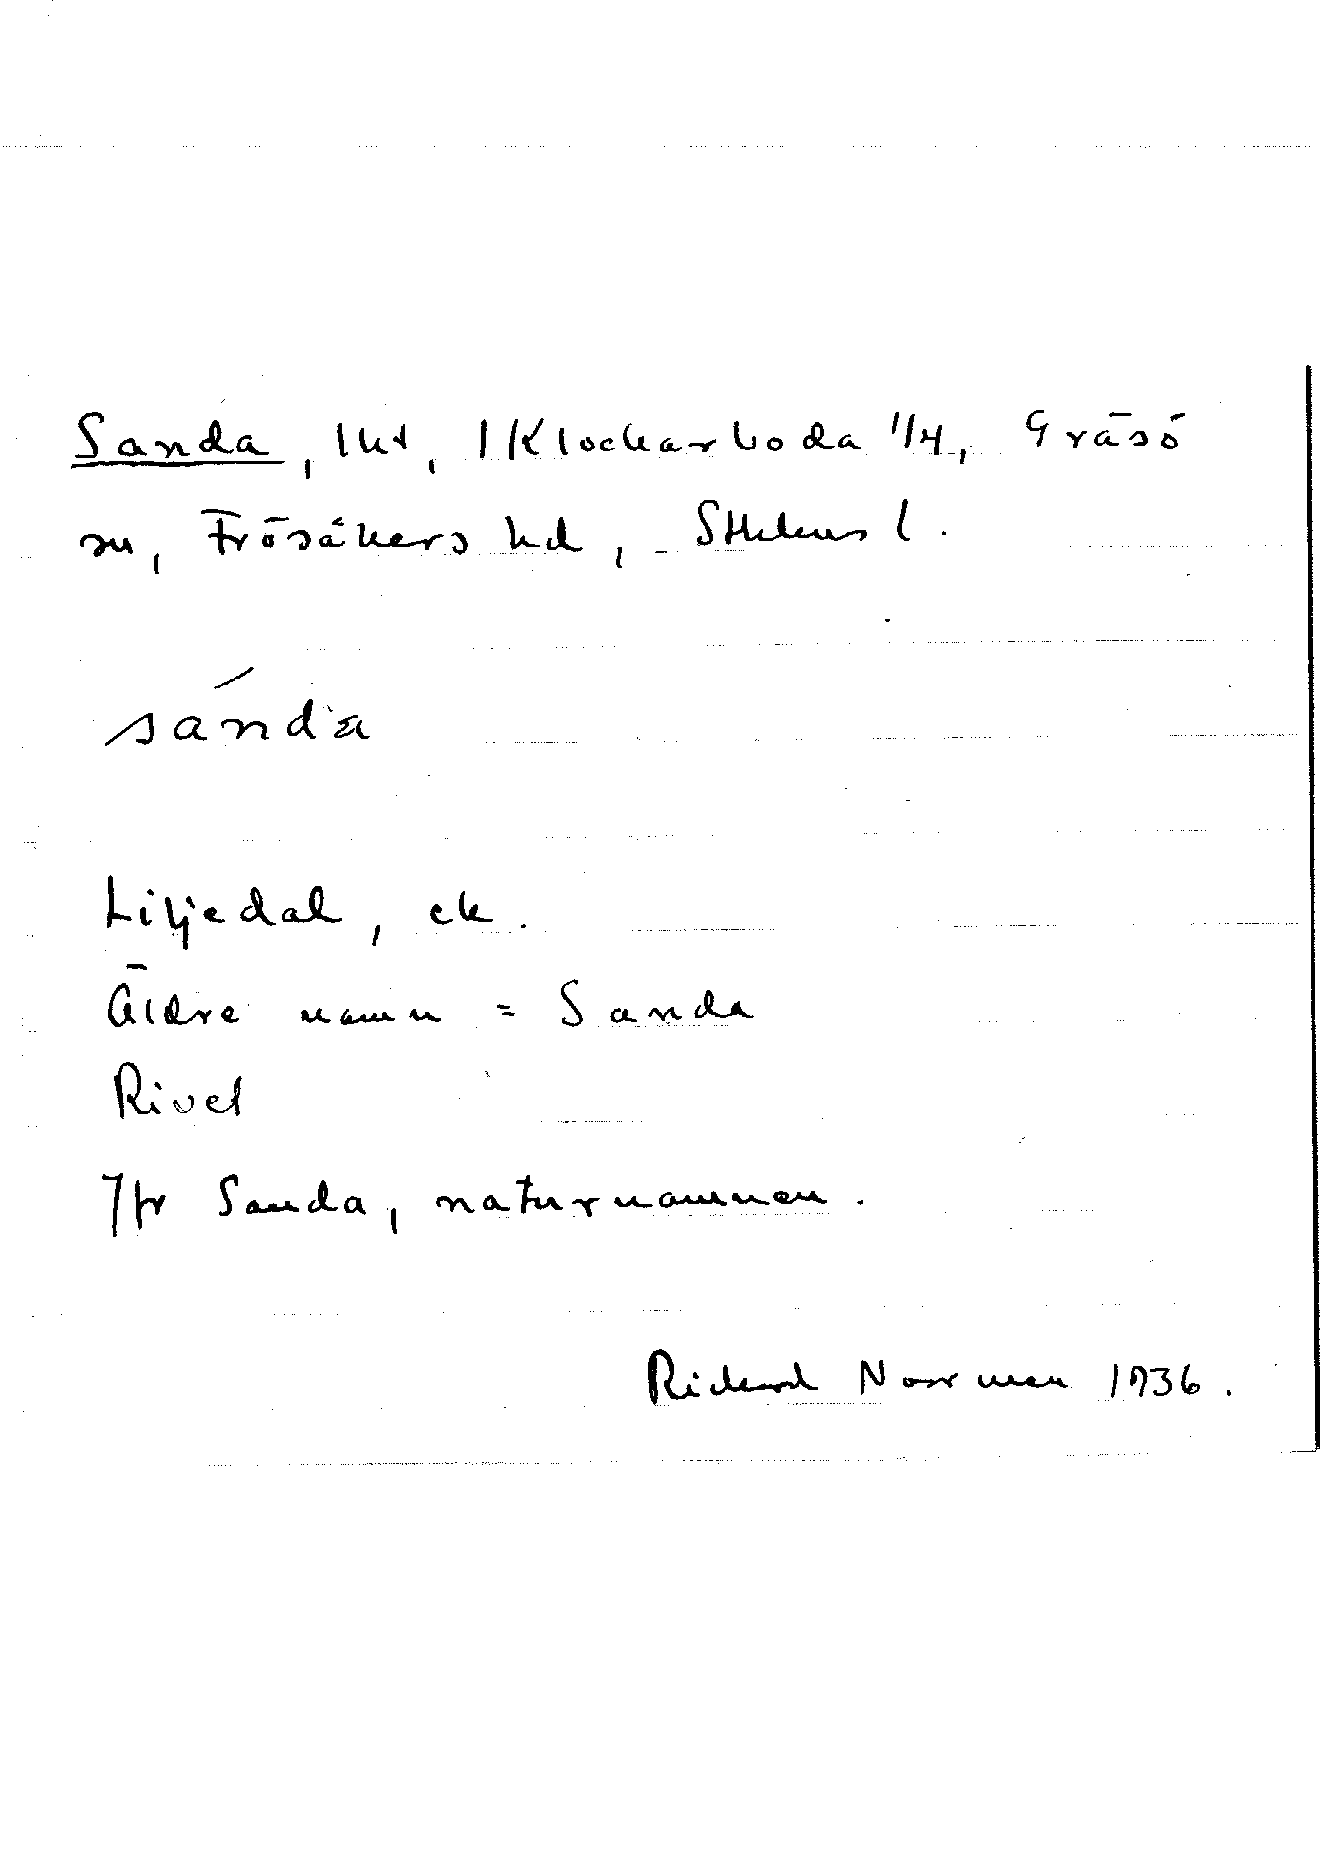 Sanda, lht, 1 Klockarboda 1/4, Gräsö
sn, Frösåkers hd, Sthlms l.
sánda
Liljedal, ek.
Äldre namn = Sanda
Rivet
Jfr Sanda, naturnamnen.
Rickard Norrman 1936.